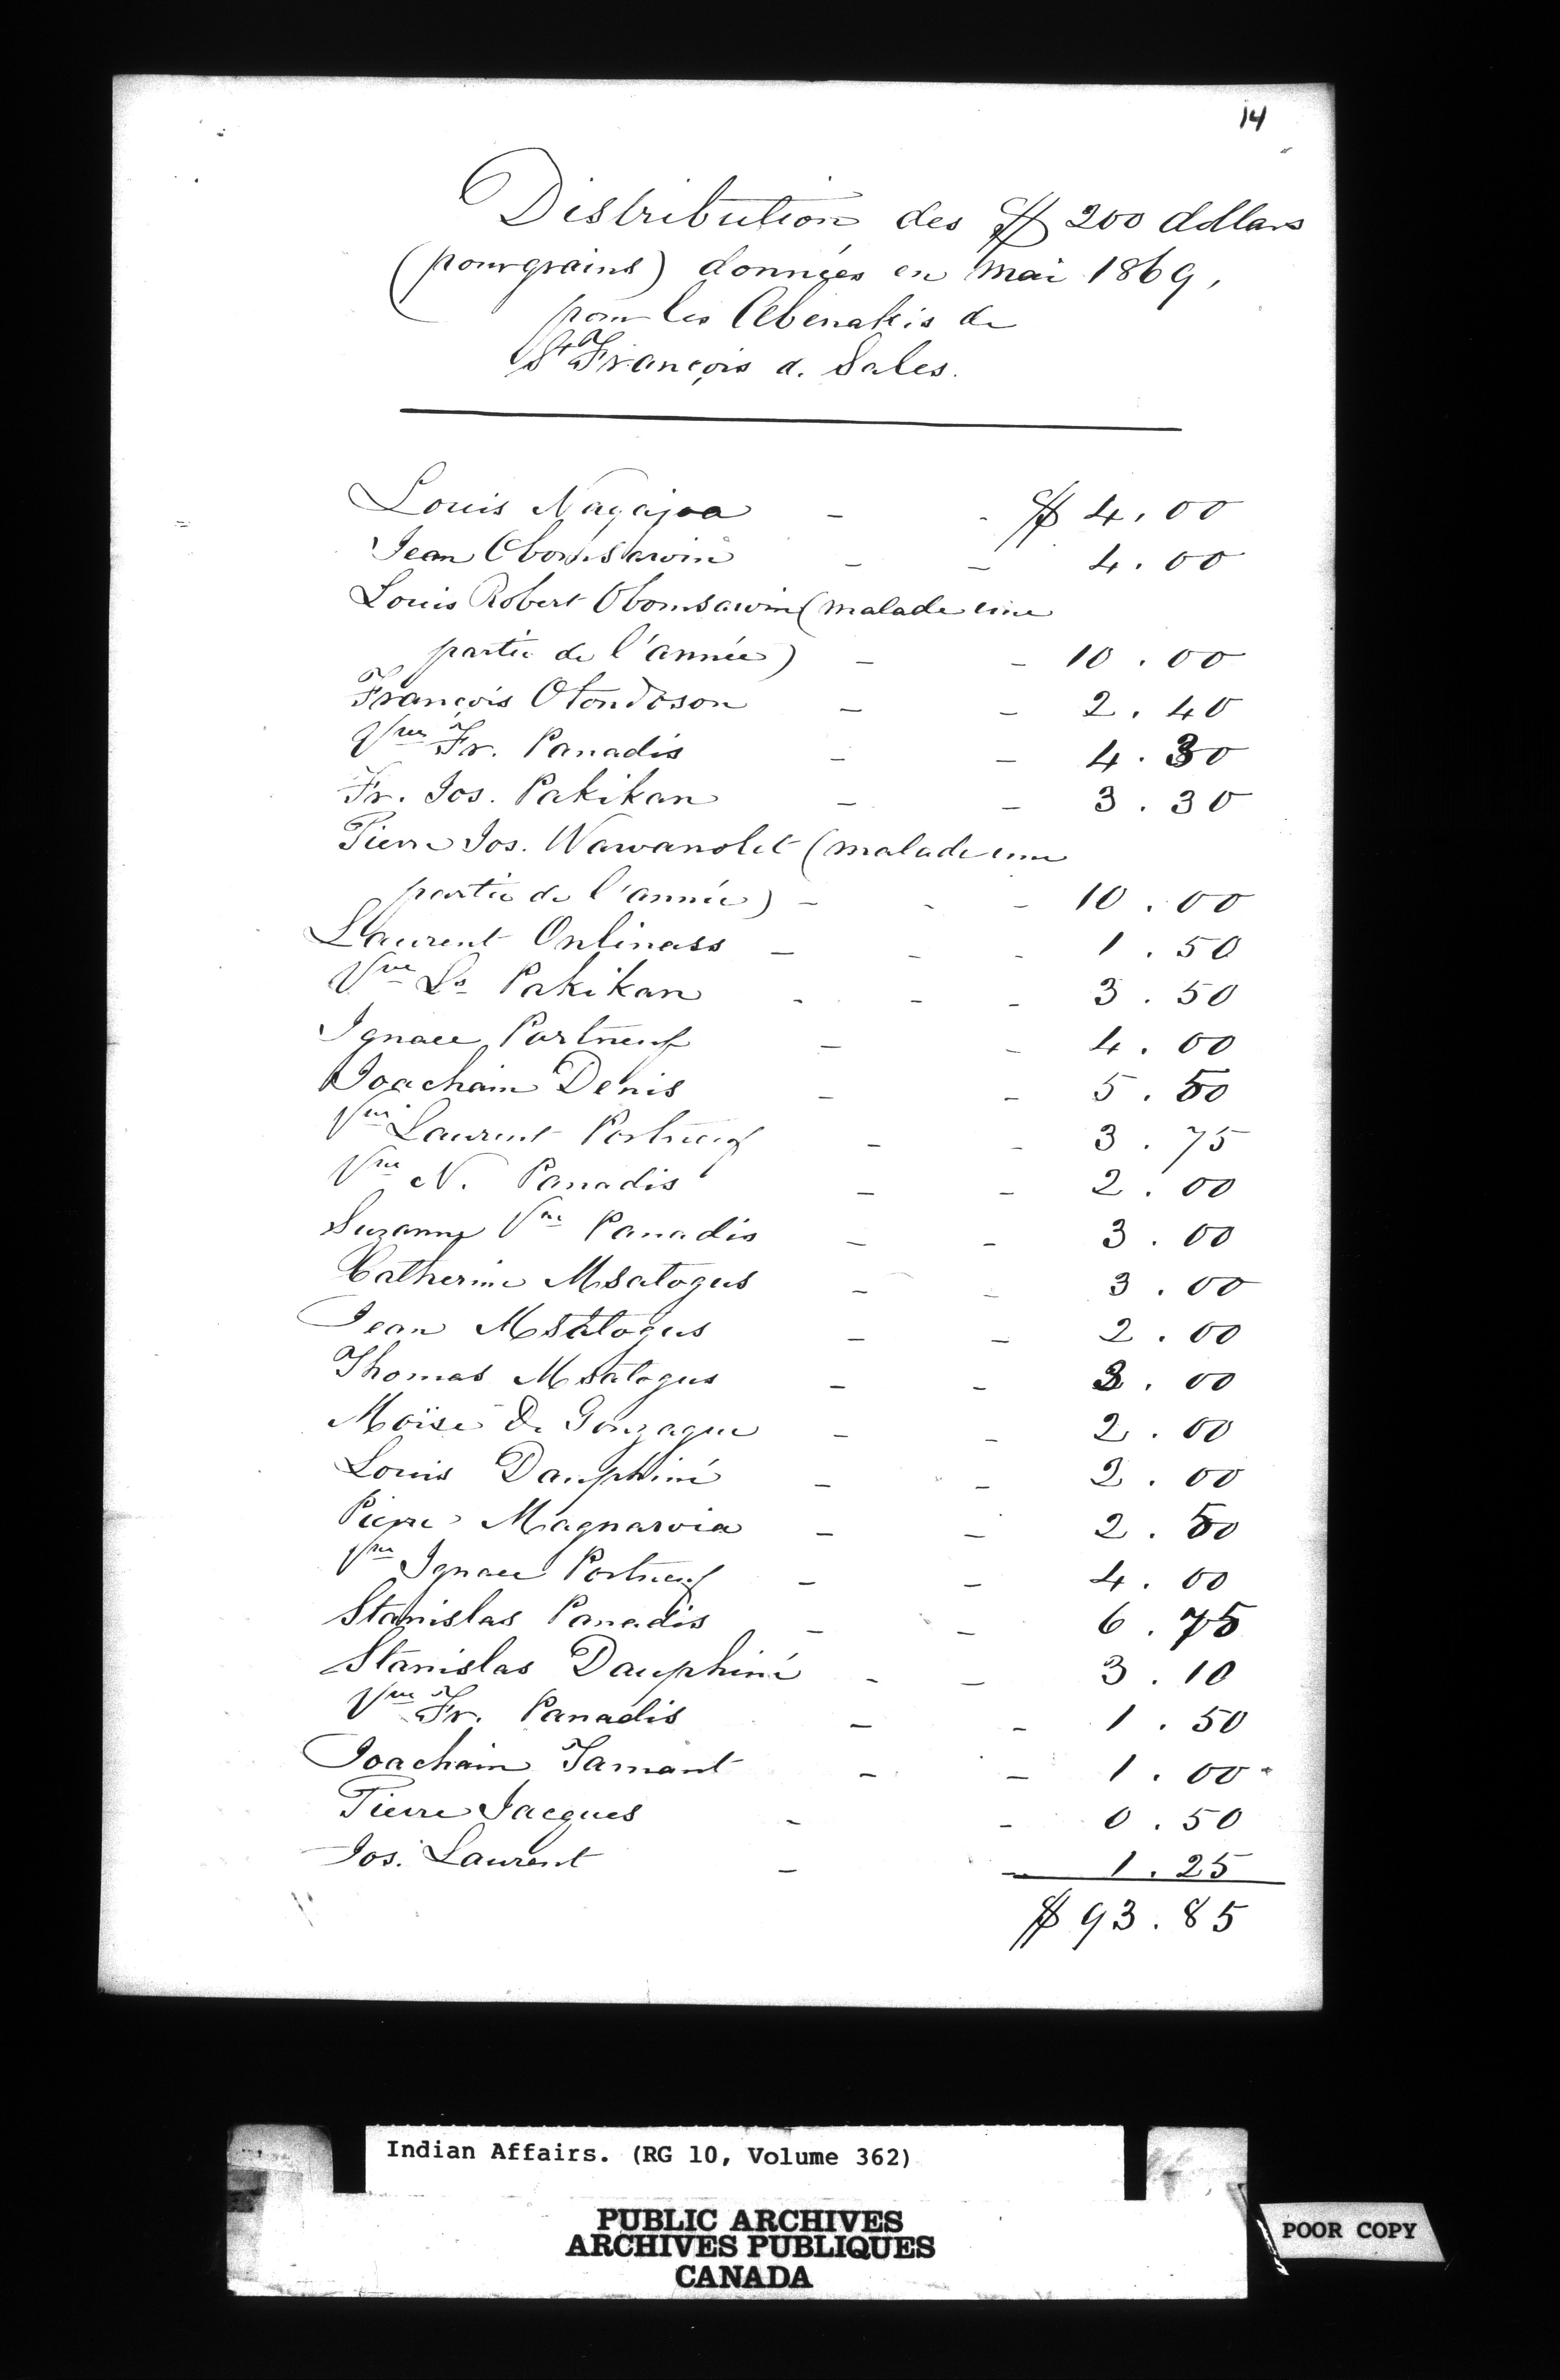 14
Distribution des $ 200 dollars
(pour grains) données en mai 1869,
pour les Abenakis de
St François d. Sales.
Louis Nagajoa - - $ 4.00
Jean Obomsawin - - 4.00
Louis Robert Obomsawin (malade une
partie de l'année) - - 10.00
François Otondoson - - 2.40
Vve Fr. Panadis - - 4.30
Fr. Jos. Pakikan - - 3.30
Pierre Jos. Wawanolet (malade une
partie de l'année) - - - 10.00
Laurent Onlinass - - - 1.50
Vve Ls Pakikan - - - 3.50
Ignace Portneuf - - 4.00
Joachim Denis - - 5.50
Vve Laurent Portneuf - - 3.75
Vve N. Panadis - - 2.00
Suzanne Vve Panadis - - 3.00
Catherine Msatogus - - 3.00
Jean Msatogus - - 2.00
Thomas Msatogus - - 3.00
Moïse De Gonzague - - 2.00
Louis Dauphiné - - 2.00
Pierre Magnawia - - 2.50
Vve Ignace Portneuf - - 4.00
Stanislas Panadis - - 6.75
Stanislas Dauphiné - - 3.10
Vve Fr. Panadis - - 1.50
Joachim Tamant - - 1.00
Pierre Jacques - - 0.50
Jos. Laurent - - 1.25
$ 93.85
Indian Affairs. (RG 10, Volume 362)
PUBLIC ARCHIVES
ARCHIVES PUBLIQUES
CANADA
POOR COPY